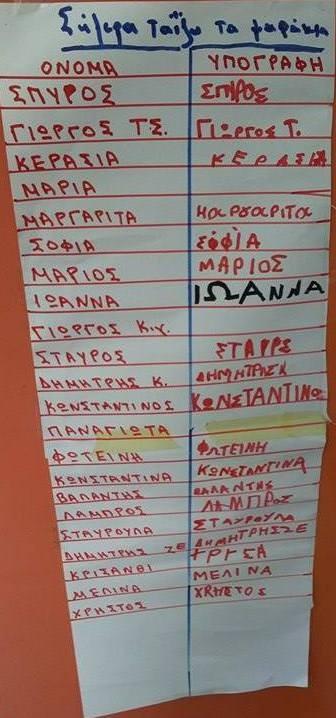 Σήμερα ταΐζω τα ψαράκια
ΟΝΟΜΑ ΥΠΟΓΡΑΦΗ
ΣΠΥΡΟΣ ΣΠΥΡΟΣ
ΓΙΩΡΓΟΣ ΤΣ. ΓΙΩΡΓΟΣ Τ.
ΚΕΡΑΣΙΑ ΚΕΡΑΣΙΑ
ΜΑΡΙΑ
ΜΑΡΓΑΡΙΤΑ ΜΑΡΓΑΡΙΤΑ
ΣΟΦΙΑ ΣΟΦΙΑ
ΜΑΡΙΟΣ ΜΑΡΙΟΣ
ΙΩΑΝΝΑ ΙΩΑΝΝΑ
ΓΙΩΡΓΟΣ Κ.γ.
ΣΤΑΥΡΟΣ
ΔΗΜΗΤΡΗΣ Κ. ΔΗΜΗΤΡΗΣΚ
ΚΩΝΣΤΑΝΤΙΝΟΣ ΚΩΝΣΤΑΝΤΙΝΟ
ΠΑΝΑΓΙΩΤΑ
ΦΩΤΕΙΝΗ ΦΩΤΕΙΝΗ
ΚΩΝΣΤΑΝΤΙΝΑ ΚΩΝΣΤΑΝΤΙΝΑ
ΒΑΛΑΝΤΗΣ ΒΑΛΑΝΤΗΣ
ΛΑΜΠΡΟΣ ΛΑΜΠΡΟΣ
ΣΤΑΥΡΟΥΛΑ ΣΤΑΥΡΟΥΛΑ
ΔΗΜΗΤΡΗΣ ΖΕ ΔΗΜΗΤΡΗΣΖΕ
ΚΡΙΣΑΝΘΙ
ΜΕΛΙΝΑ ΜΕΛΙΝΑ
ΧΡΗΣΤΟΣ ΧΡΗΣΤΟΣ